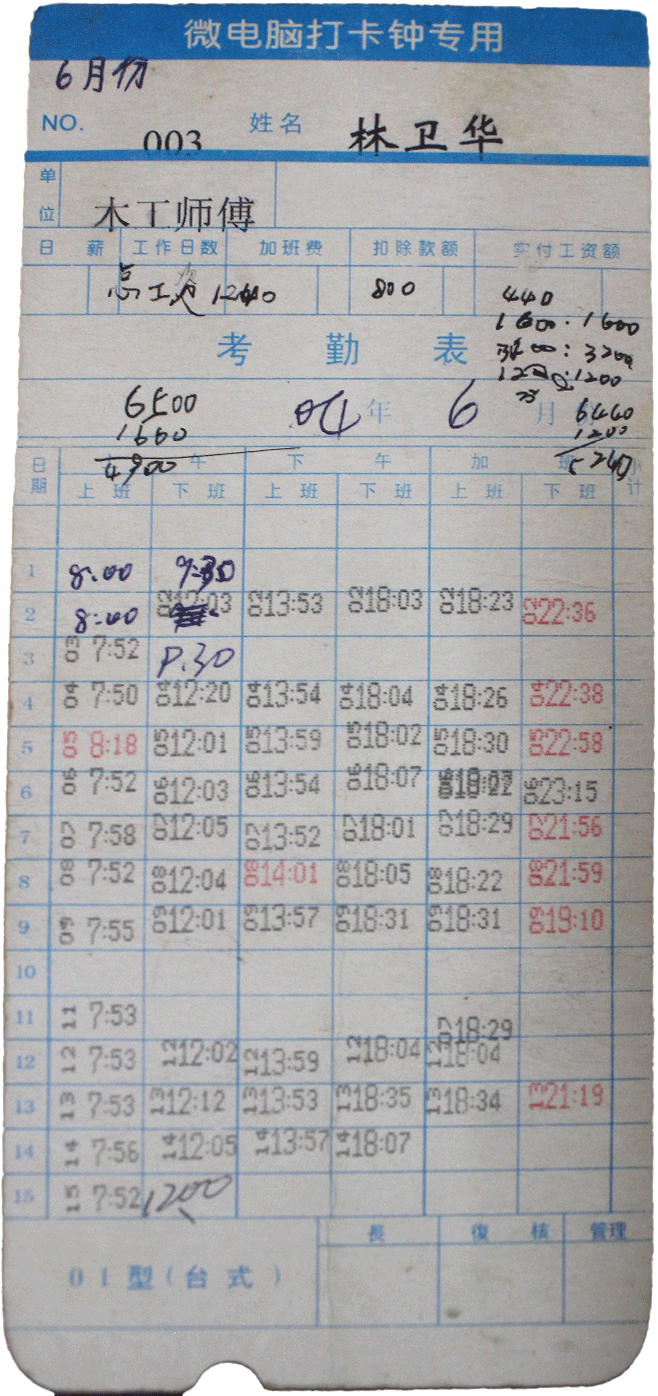 微电脑打卡钟专用
6月份
NO. 003 姓名 林卫华
单位 木工师傅
日薪 工作日数 加班费 扣除款额 实付工资额
总工资 1240 800 440
1600 · 1600
考勤表 : 3200
1200
6500 04年 6月 6440
1660 1200
4900 5240
日期 午 下午 加班 小计
上班 下班 上班 下班 上班 下班
1 8:00 9:30
2 8:00 0212:03 0213:53 0218:03 0218:23 0222:36
3 03 7:52 P.30
4 04 7:50 0412:20 0413:54 0418:04 0418:26 0422:38
5 05 8:18 0512:01 0513:59 0518:02 0518:30 0522:58
6 06 7:52 0612:03 0613:54 0618:07 0623:15
7 07 7:58 0712:05 0713:52 0718:01 0718:29 0721:56
8 08 7:52 0812:04 0814:01 0818:05 0818:22 0821:59
9 09 7:55 0912:01 0913:57 0918:31 0918:31 0919:10
10
11 11 7:53 18:29
12 12 7:53 1212:02 1213:59 1218:04 1218:04
13 13 7:53 1312:12 1313:53 1318:35 1318:34 1321:19
14 14 7:56 1412:05 1413:57 1418:07
15 15 7:52 1200
長 復核 管理
01型(台式)